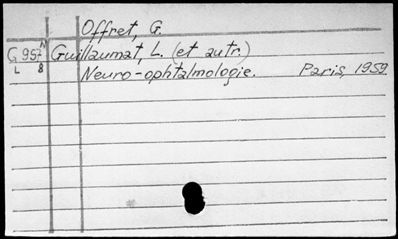 Offret, G.
G 957 N Guillaumat, L. (et autr.)
L 8 Neuro-ophtalmologie. Paris, 1959.